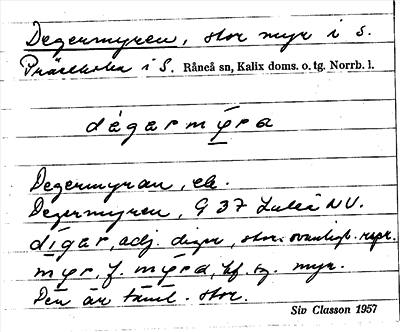 Degermyren, stor myr i S.
Prästholm i S. Råneå sn, Kalix doms. o. tg. Norrb. l.
dégarmy̱ra
Degermyran, ek.
Degermyren, G 37 Luleå NV.
dígar, adj. diger, stor. ovanligt.
myr, f. my̱ra, bf. sg. myr.
Den är täml. stor.
Siv Classon 1957